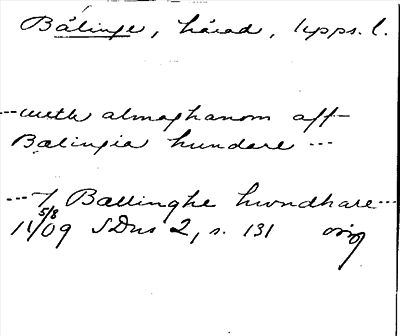 Bälinge, härad, Upps. l.
---meth almoghanom aff
Bælingia hundare ---
--- J Bællinghe hwndhare---
5/8
1409 SDns 2, s. 131 orig